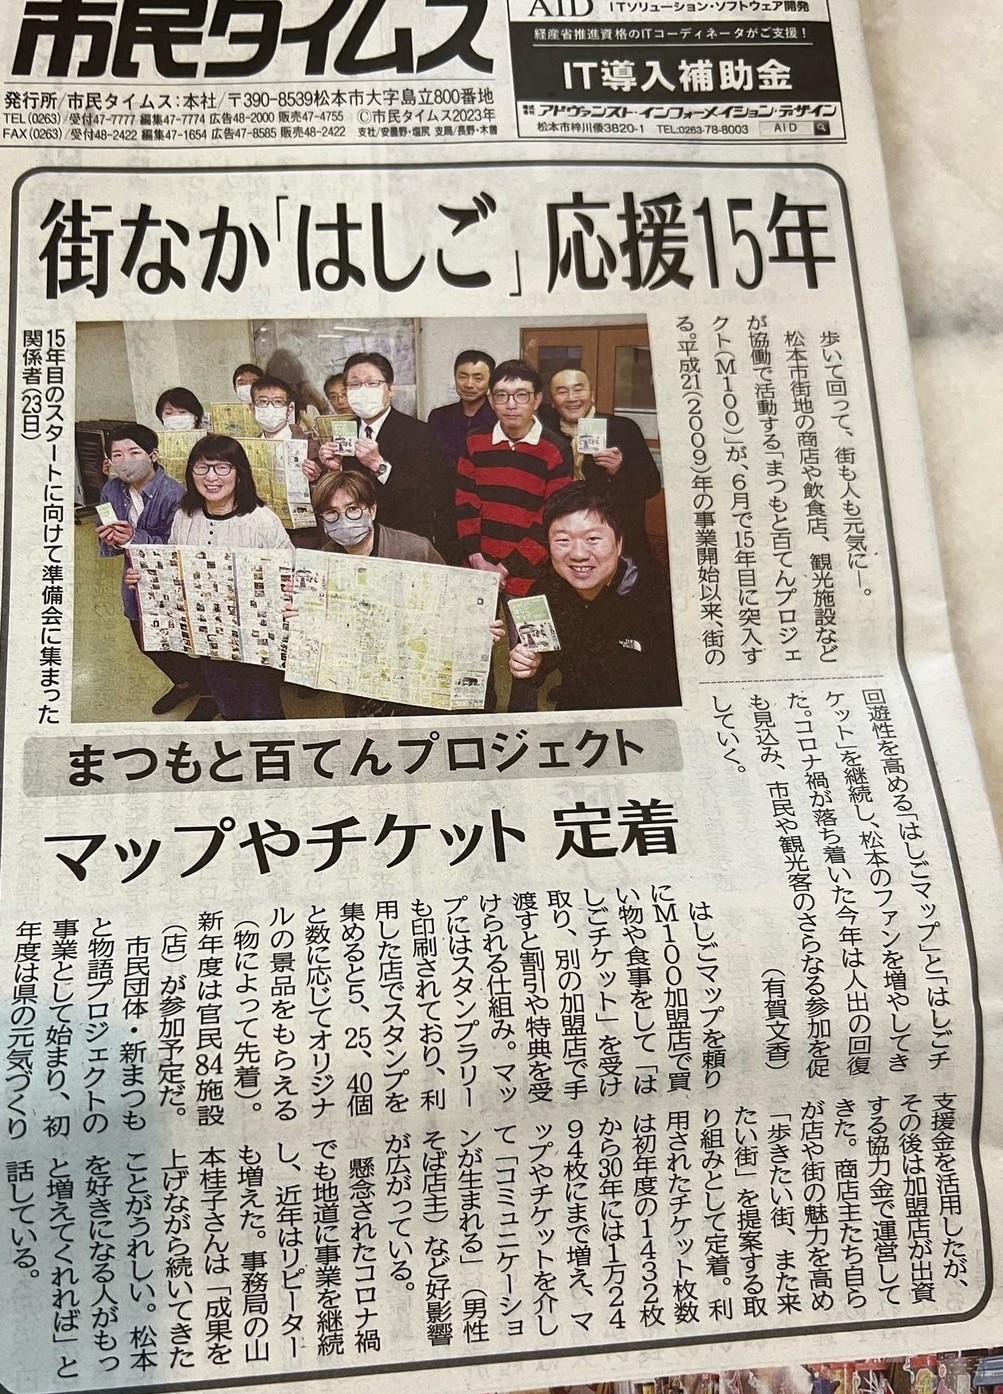 市民タイムス
発行所/市民タイムス:本社/〒390-8539松本市大字島立800番地
TEL(0263)/受付47-7777 編集47-7774 広告48-2000 販売47-4755 ©市民タイムス2023年
FAX(0263)/受付48-2422 編集47-1654 広告47-8585 販売48-2422 支社/安曇野・塩尻 支局/長野・木曽
AID ITソリューション・ソフトウェア開発
経産省推進資格のITコーディネータがご支援!
IT導入補助金
株式会社 アドヴァンスト・インフォーメイション・デザイン
松本市梓川倭3820-1 TEL:0263-78-8003 AID
街なか「はしご」応援15年
歩いて回って、街も人も元気に―。
松本市街地の商店や飲食店、観光施設など
が協働で活動する「まつもと百てんプロジェ
クト(M100)」が、6月で15年目に突入す
る。平成21(2009)年の事業開始以来、街の
回遊性を高める「はしごマップ」と「はしごチ
ケット」を継続し、松本のファンを増やしてき
た。コロナ禍が落ち着いた今年は人出の回復
も見込み、市民や観光客のさらなる参加を促
していく。
(有賀文香)
15年目のスタートに向けて準備会に集まった
関係者(23日)
まつもと百てんプロジェクト
マップやチケット 定着
はしごマップを頼り
にM100加盟店で買
い物や食事をして「は
しごチケット」を受け
取り、別の加盟店で手
渡すと割引や特典を受
けられる仕組み。マッ
プにはスタンプラリー
も印刷されており、利
用した店でスタンプを
集めると5、25、40個
と数に応じてオリジナ
ルの景品をもらえる
(物によって先着)。
新年度は官民84施設
(店)が参加予定だ。
市民団体・新まつも
と物語プロジェクトの
事業として始まり、初
年度は県の元気づくり
支援金を活用したが、
その後は加盟店が出資
する協力金で運営して
きた。商店主たち自ら
が店や街の魅力を高め
「歩きたい街、また来
たい街」を提案する取
り組みとして定着。利
用されたチケット枚数
は初年度の1432枚
から30年には1万24
94枚にまで増え、マ
ップやチケットを介し
て「コミュニケーショ
ンが生まれる」(男性
そば店主)など好影響
が広がっている。
懸念されたコロナ禍
でも地道に事業を継続
し、近年はリピーター
も増えた。事務局の山
本桂子さんは「成果を
上げながら続いてきた
ことがうれしい。松本
を好きになる人がもっ
と増えてくれれば」と
話している。